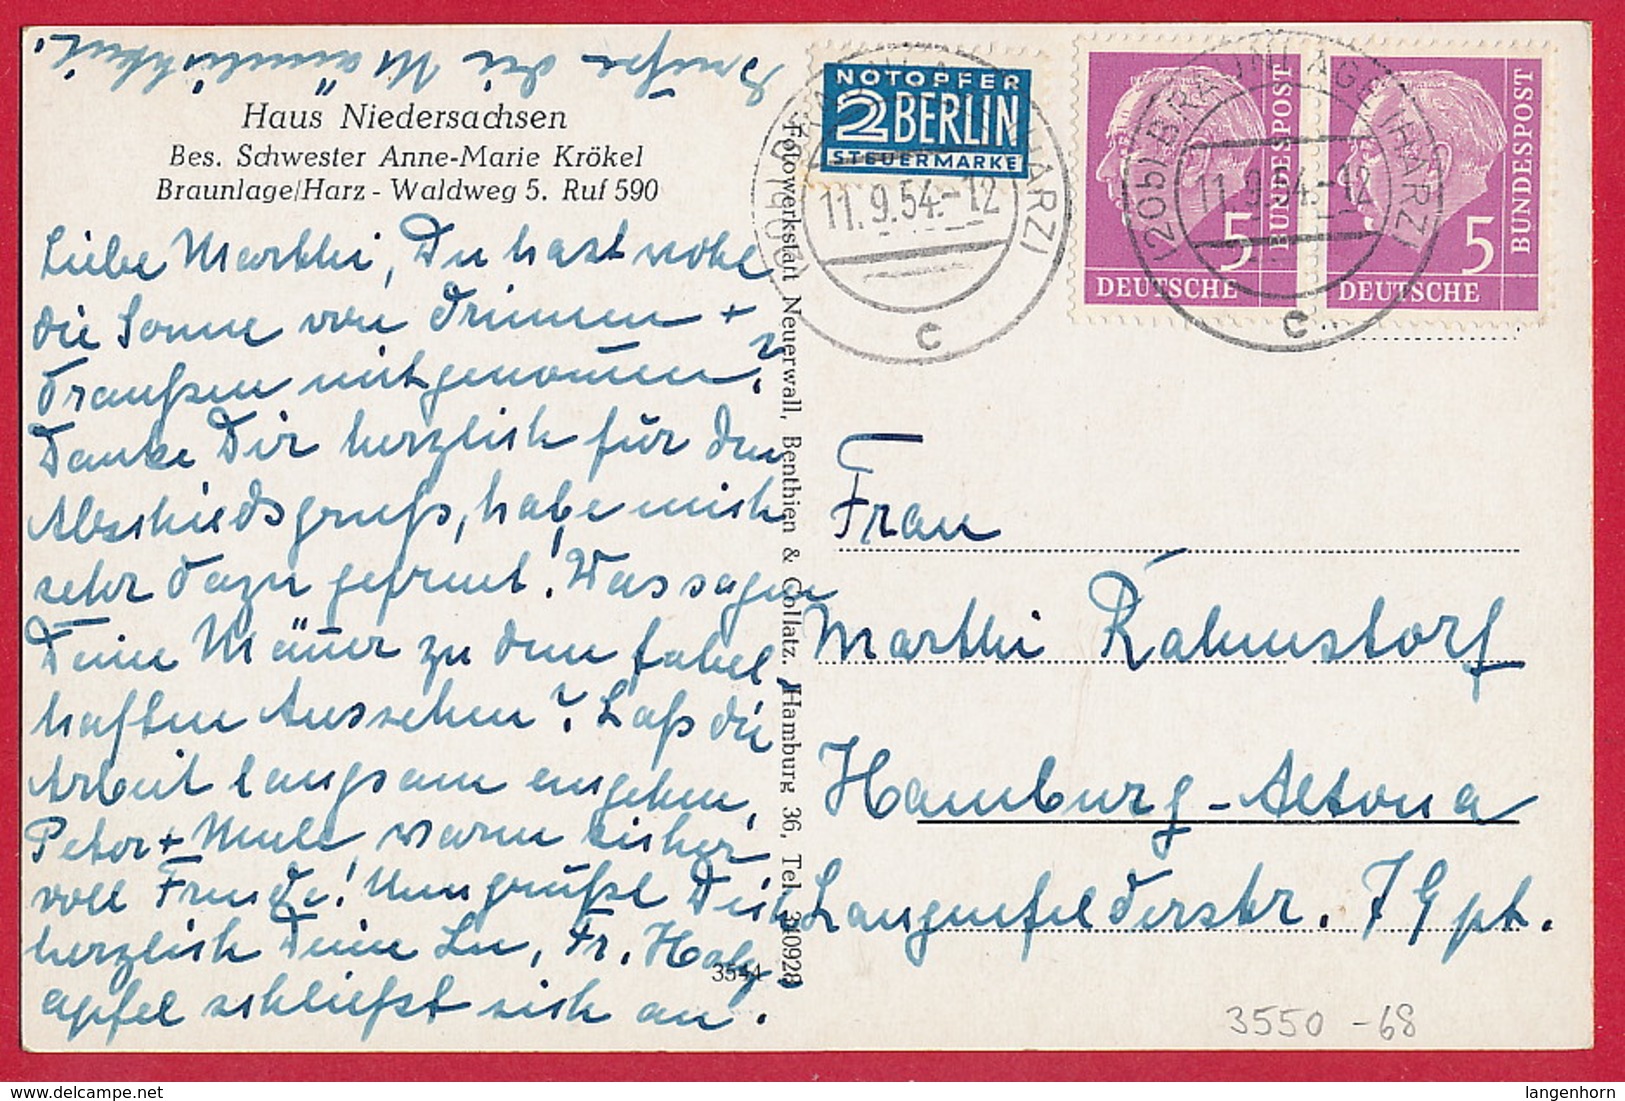 Grüße die Männlichkeit.
Haus Niedersachsen
Bes. Schwester Anne-Marie Krökel
Braunlage/Harz - Waldweg 5. Ruf 590
Liebe Marthi, Du hast wohl
die Sonne von drinnen +
draußen mitgenommen?
Danke Dir herzlich für den
Abschiedsgruß, habe mich
sehr dazu gefreut! Was sagen
Deine Männer zu dem fabel-
haften Aussehen? Laß die
Arbeit langsam angehen,
Peter + Mule waren sicher
voll Freude! Nun grüßt Dich
herzlich Deine Lu, Fr. Holz-
apfel schließt sich an.
Fotowerkstatt Neuerwall, Benthien & Collatz, Hamburg 36, Tel.
3541
NOTOPFER
2 BERLIN
STEUERMARKE
(20b) BRAUNLAGE (HARZ)
11.9.54.-12
c
5
BUNDESPOST
DEUTSCHE
5
BUNDESPOST
DEUTSCHE
(20b) BRAUNLAGE (HARZ)
11.9.54.-12
c
Frau
Marthi Rahmstorf
Hamburg-Altona
Langenfelderstr. 79 pt.
3550 -68
langenhorn